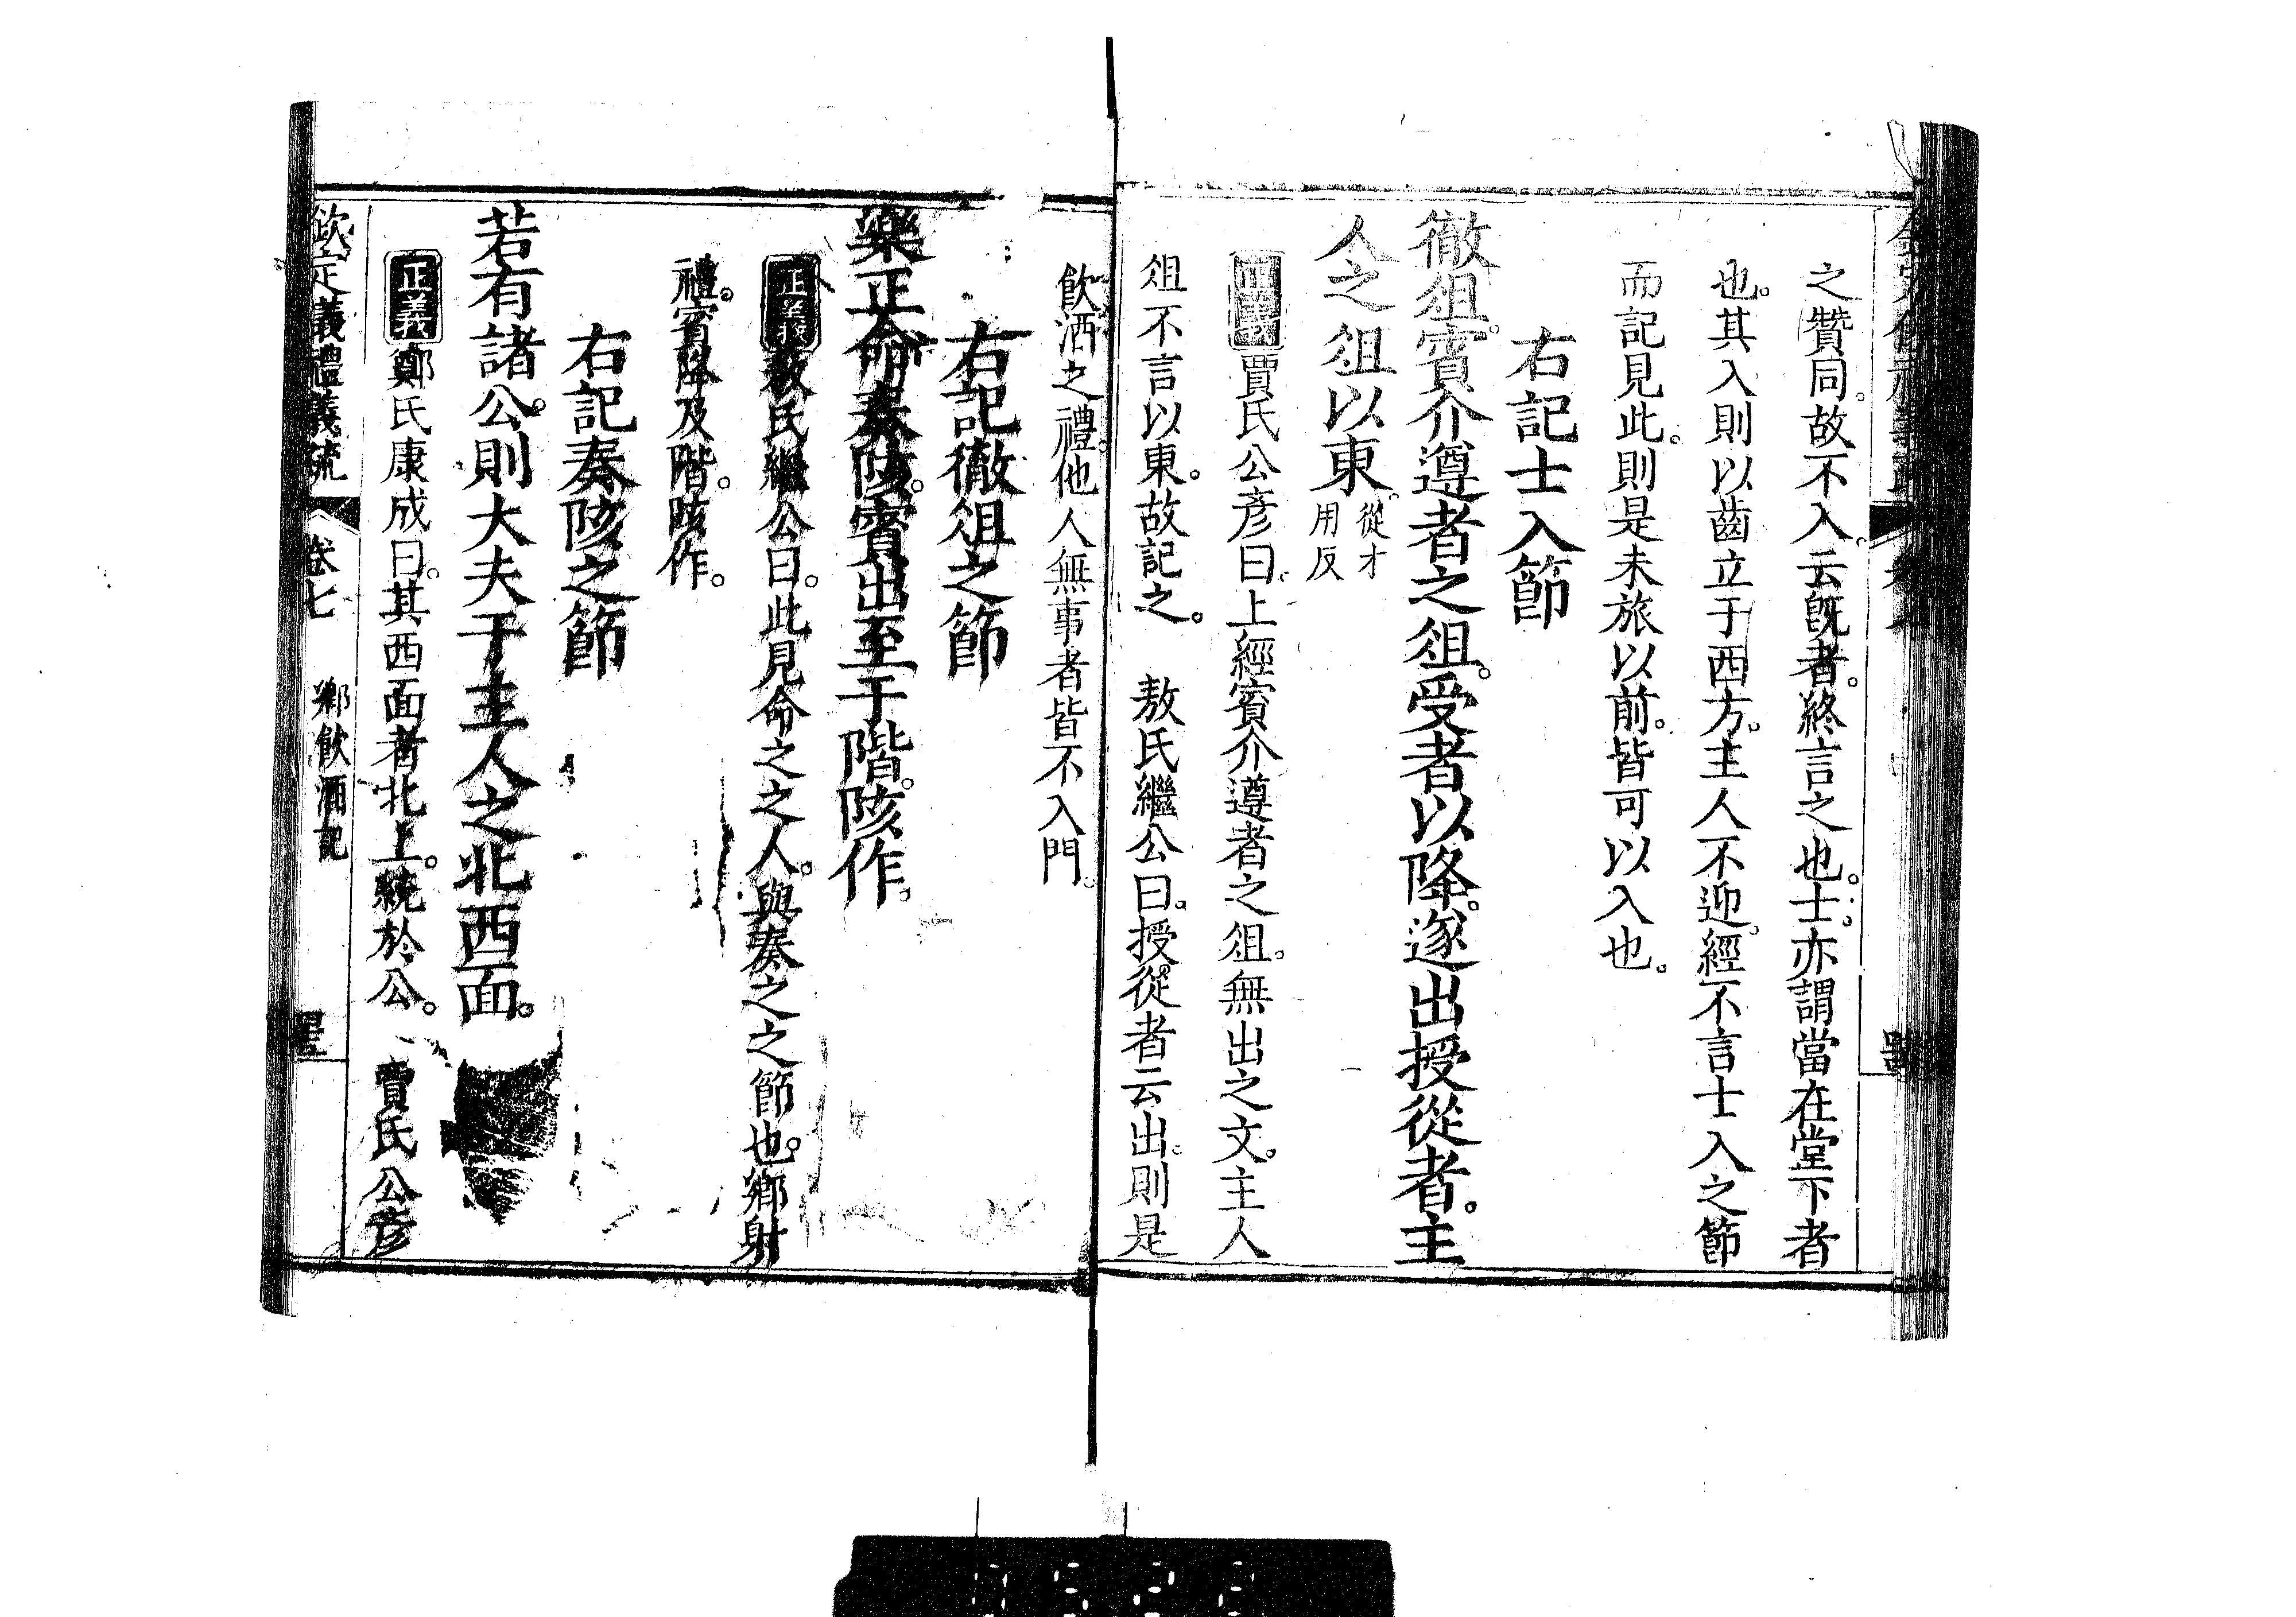 之贊同。故不入。云旣者。終言之也。士。亦謂當在堂下者
也。其入則以齒立于西方。主人不迎。經不言士入之節
而記見此。則是未旅以前。皆可以入也。
右記士入節
徹俎。賓介遵者之俎。受者以降。遂出授從者。主
人之俎以東。從才用反
正義賈氏公彦曰。上經賓介遵者之俎。無出之文。主人
俎不言以東。故記之。 敖氏繼公曰。授從者云出。則是
飲酒之禮。他人無事者皆不入門。
右記徹俎之節
樂正命奏陔。賓出至于階。陔作。
正義敖氏繼公曰。此見命之之人。與奏之之節也。鄉射
禮。賓降及階。陔作。
右記奏陔之節
若有諸公。則大夫于主人之北西面。
正義鄭氏康成曰。其西面者北上。統於公。 賈氏公彦
欽定義禮義疏 卷七 鄉飲酒記